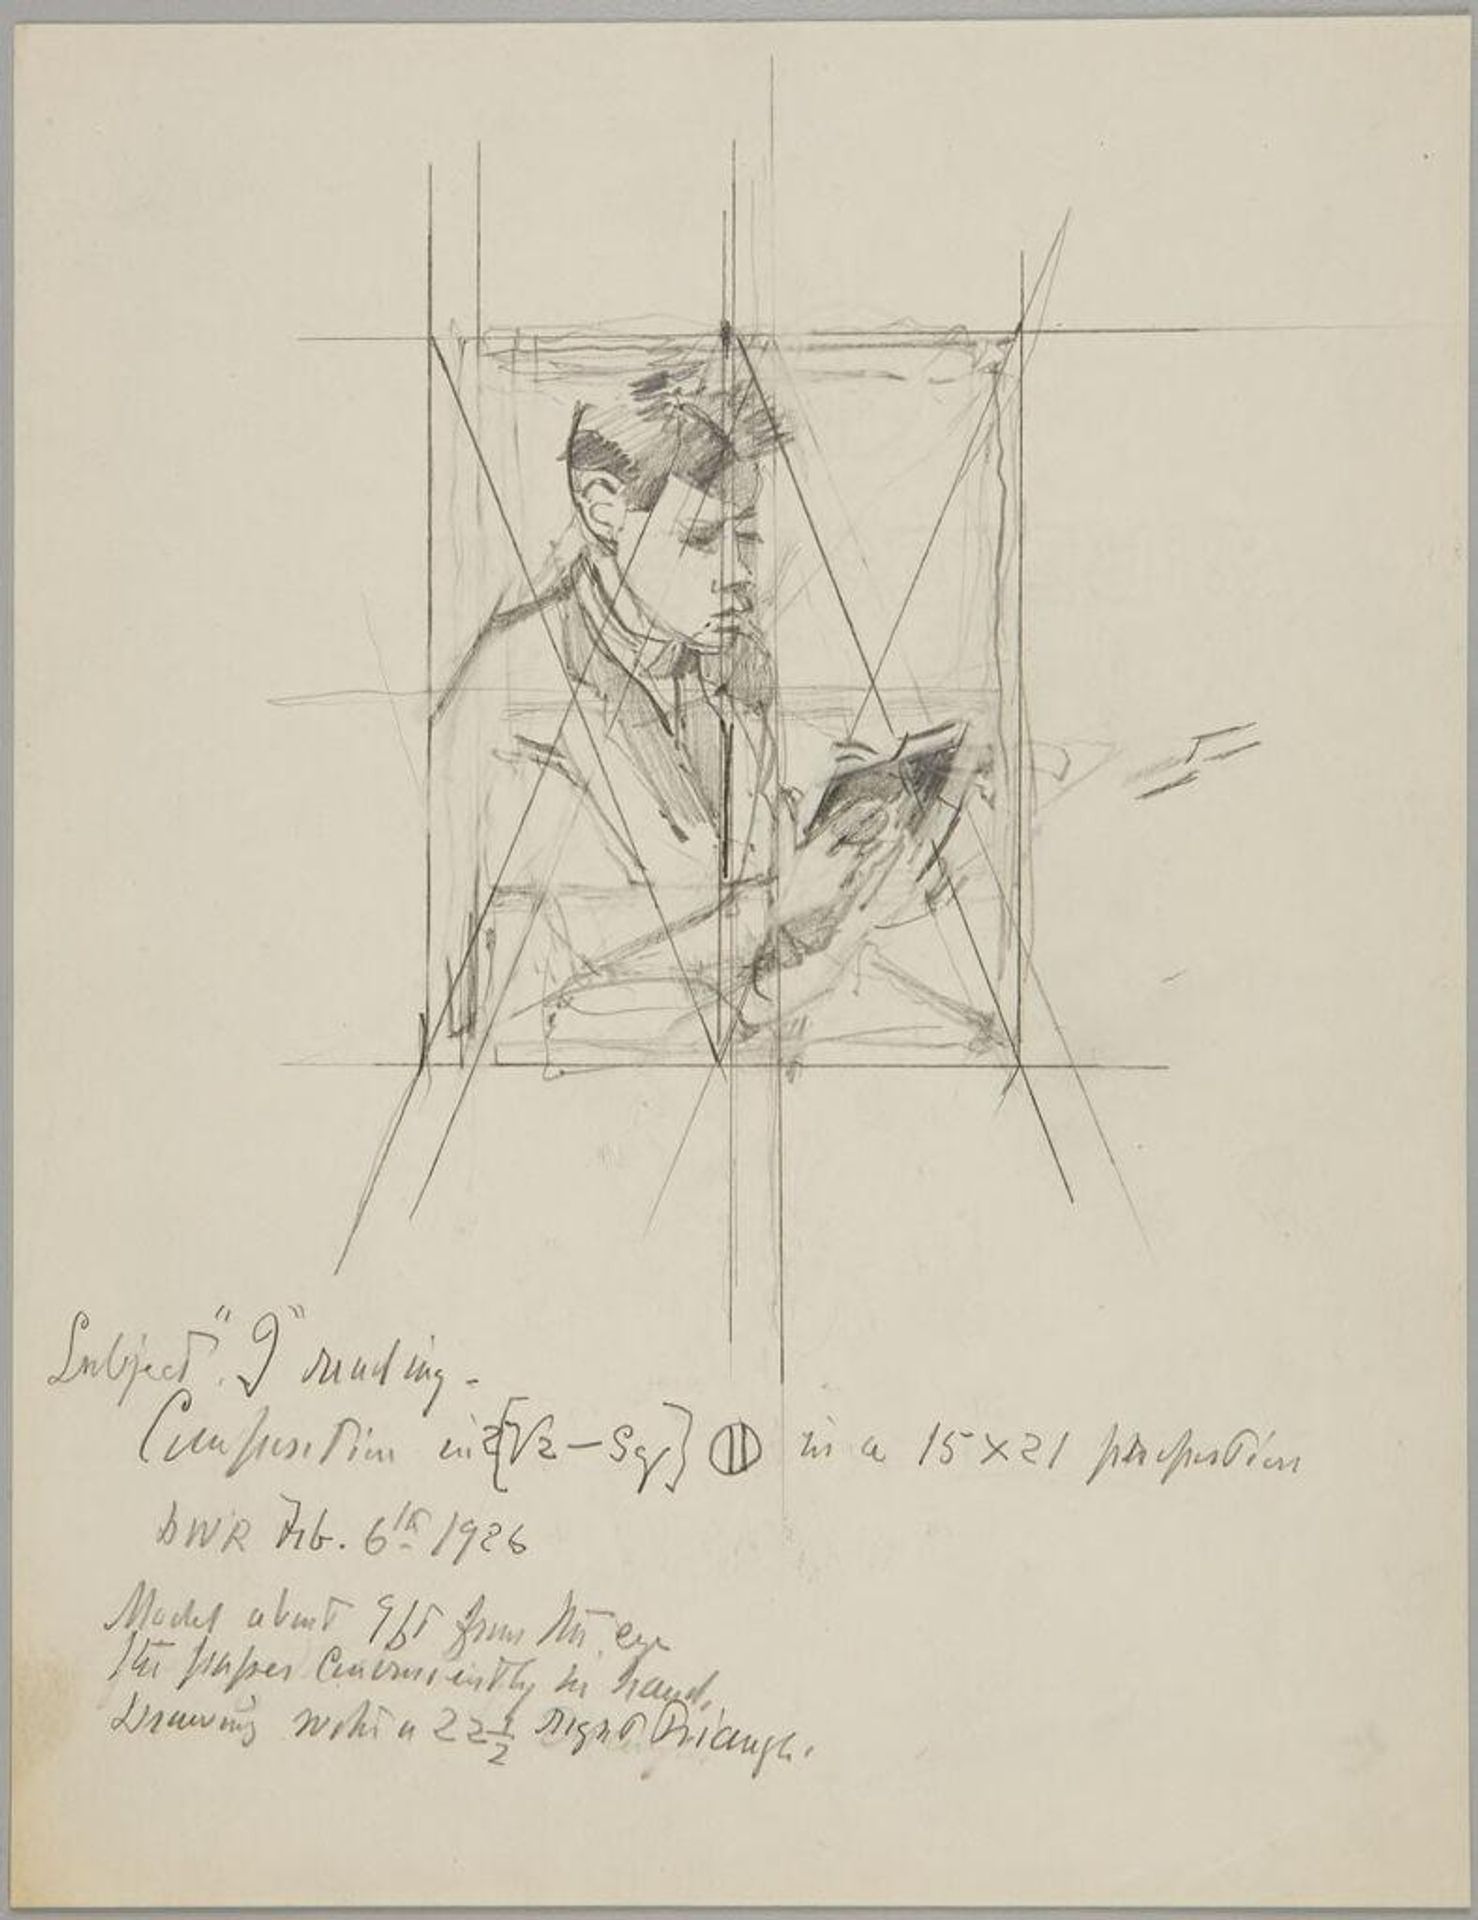 Subject "J" reading -
Composition in 2{√2 - Sq} in a 15 x 21 proportion
DWR Feb. 6th 1926
Model about 9ft from the eye
the paper conveniently in hand.
Drawing with a 22 1/2 right triangle.